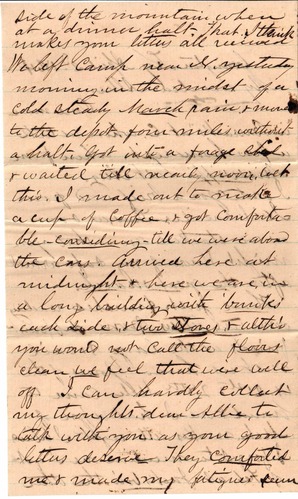 side of the mountain when
at a dinner halt. That I think
makes your letters all received
We left Camp near yesterday
morning in the midst of a
cold steady March rain &
to the depot, four miles without
a halt. Got into a forage shed
& waited till near noon, wet
this. I made out to make
a cup of coffee & got comforta-
ble - considering - till we were aboard
the cars. Arrived here at
midnight & here we are in
a long building with bunks
each side & two stoves & altho
you would not call the floors
clean we feel that we're well
off. I can hardly collect
my thoughts dear Allie to
talk with you as your good
letters deserve. They comforted
me & made my fatigues seem